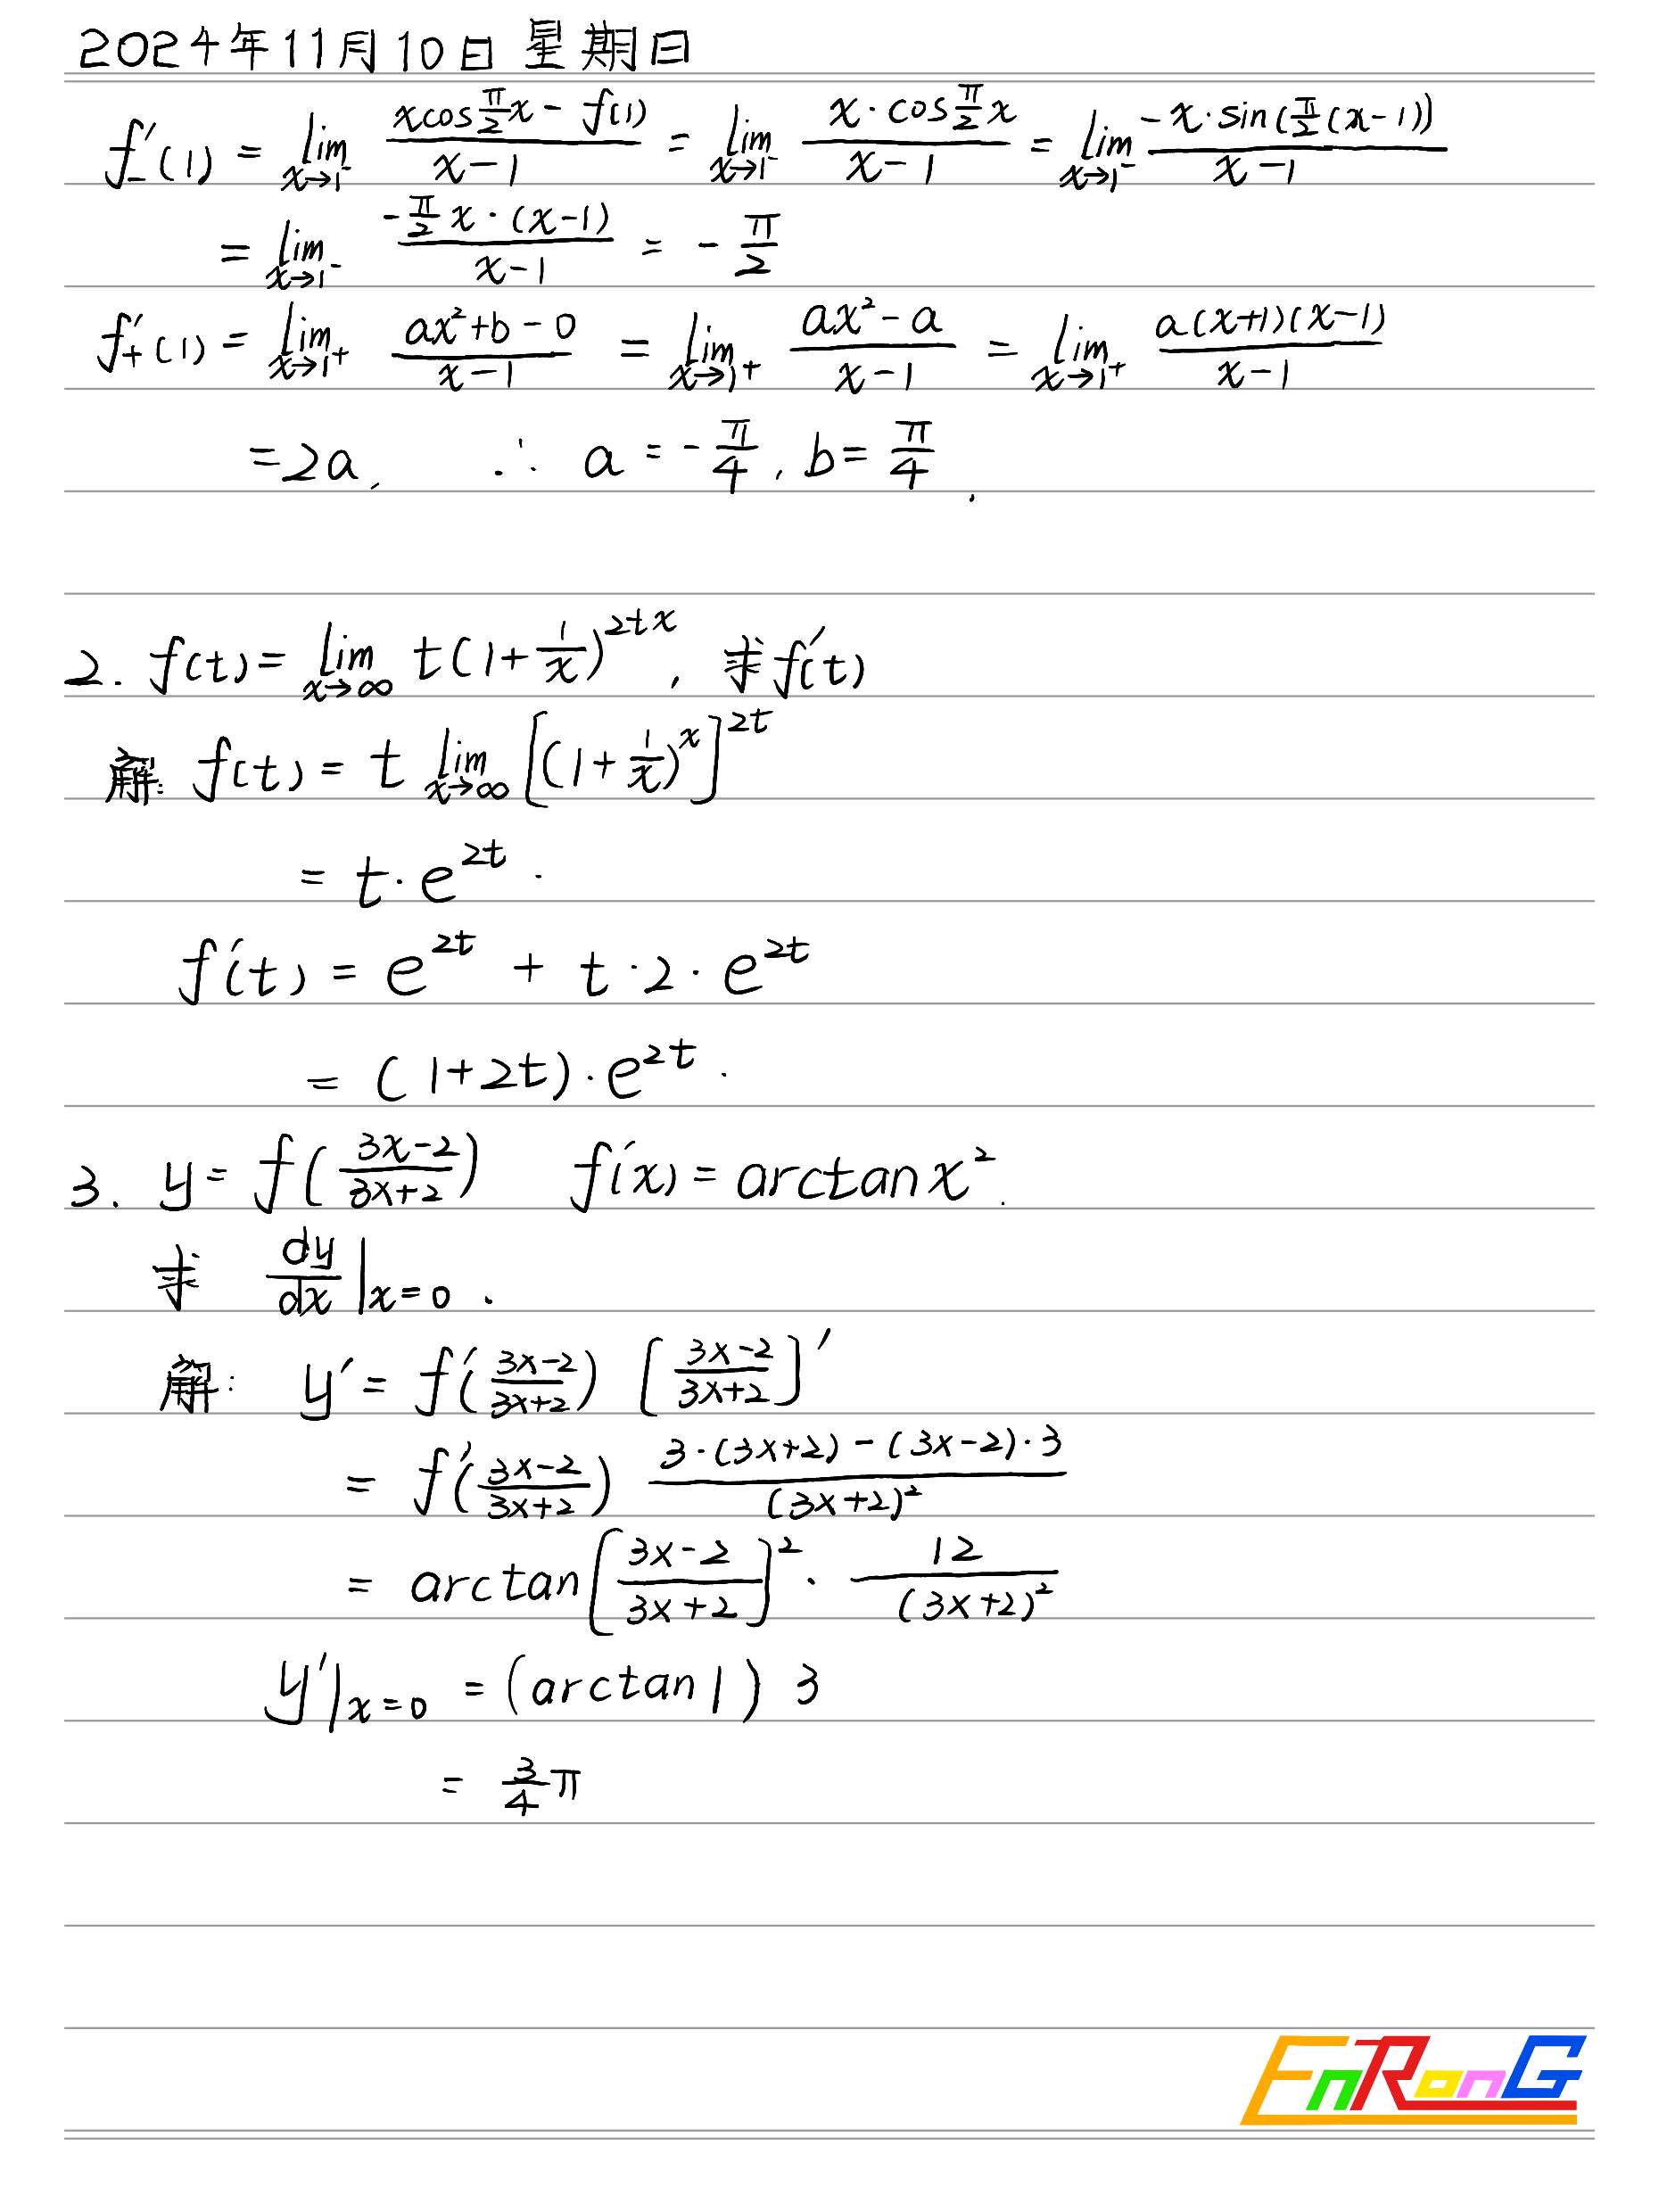 2024年11月10日 星期日
f'₋(1) = lim_{x→1⁻} (xcos(π/2)x − f(1))/(x−1) = lim_{x→1⁻} (x·cos(π/2)x)/(x−1) = lim_{x→1⁻} (−x·sin(π/2(x−1)))/(x−1)
= lim_{x→1⁻} (−(π/2)x·(x−1))/(x−1) = −π/2
f'₊(1) = lim_{x→1⁺} (ax²+b−0)/(x−1) = lim_{x→1⁺} (ax²−a)/(x−1) = lim_{x→1⁺} (a(x+1)(x−1))/(x−1)
=2a, ∴ a = −π/4, b = π/4.
2. f(t) = lim_{x→∞} t(1+1/x)^{2tx}, 求f'(t)
解: f(t) = t lim_{x→∞} [(1+1/x)^x]^{2t}
= t·e^{2t}.
f'(t) = e^{2t} + t·2·e^{2t}
= (1+2t)·e^{2t}.
3. y = f((3x−2)/(3x+2)) f'(x) = arctanx².
求 dy/dx|_{x=0}.
解: y' = f'((3x−2)/(3x+2)) [(3x−2)/(3x+2)]'
= f'((3x−2)/(3x+2)) (3·(3x+2)−(3x−2)·3)/(3x+2)²
= arctan[(3x−2)/(3x+2)]² · 12/(3x+2)²
y'|_{x=0} = (arctan1) 3
= 3/4 π
EnRonG